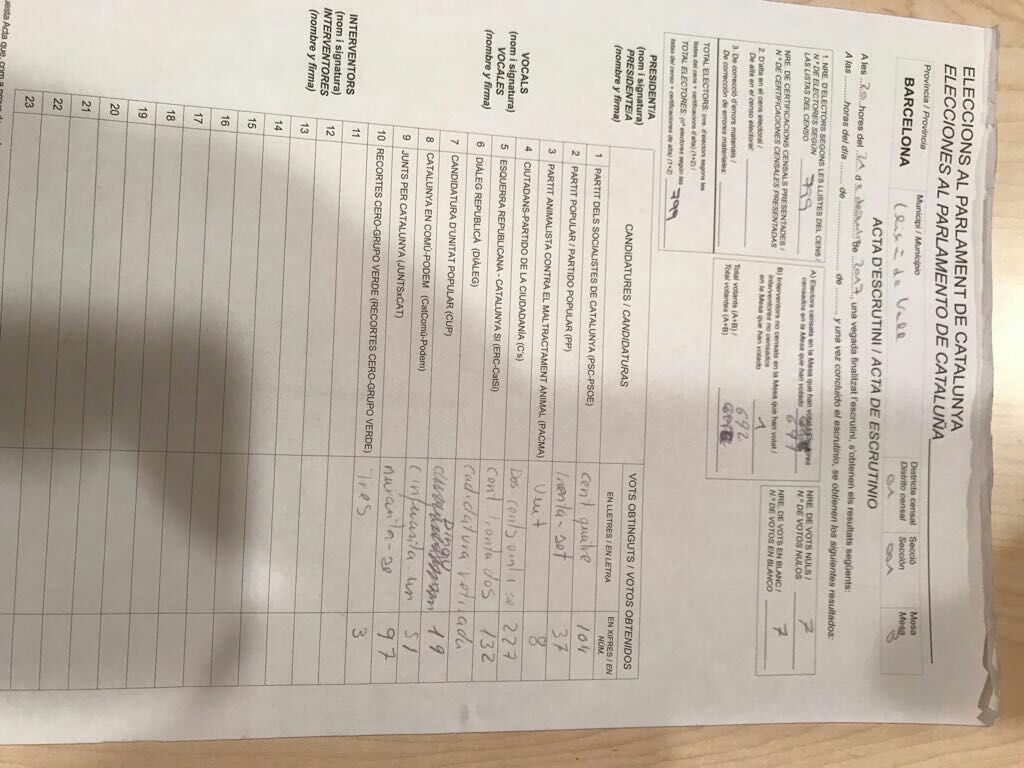 ELECCIONS AL PARLAMENT DE CATALUNYA
ELECCIONES AL PARLAMENTO DE CATALUÑA
Província / Provincia
BARCELONA
Municipi / Municipio
de Vall
Districte censal
Distrito censal
01
Secció
Sección
001
Mesa
Mesa
B
ACTA D'ESCRUTINI / ACTA DE ESCRUTINIO
A les hores del d de 2017, una vegada finalitzat l'escrutini, s'obtenen els resultats següents:
A las horas del día de de , y una vez concluido el escrutinio, se obtienen los siguientes resultados:
1. NRE. D'ELECTORS SEGONS LES LLISTES DEL CENS /
N.º DE ELECTORES SEGÚN
LAS LISTAS DEL CENSO 799
NRE. DE CERTIFICACIONS CENSALS PRESENTADES /
N.º DE CERTIFICACIONES CENSALES PRESENTADAS
2. D'alta en el cens electoral /
De alta en el censo electoral:
3. De correcció d'errors materials /
De corrección de errores materiales:
TOTAL ELECTORS: (nre. d'electors segons les
llistes del cens + certificacions d'alta) (1+2) /
TOTAL ELECTORES: (nº electores según las
listas del censo + certificaciones de alta) (1+2) 799
A) Electors censats en la Mesa que han votat / Electores
censados en la Mesa que han votado 691
B) Interventors no censats en la Mesa que han votat /
Interventores no censados
en la Mesa que han votado 1
Total votants (A+B) /
Total votantes (A+B) 692
NRE. DE VOTS NULS /
N.º DE VOTOS NULOS 7
NRE. DE VOTS EN BLANC /
N.º DE VOTOS EN BLANCO 7
PRESIDENT/A
(nom i signatura)
PRESIDENTE/A
(nombre y firma)
VOCALS
(nom i signatura)
VOCALES
(nombre y firma)
INTERVENTORS
(nom i signatura)
INTERVENTORES
(nombre y firma)
CANDIDATURES / CANDIDATURAS
VOTS OBTINGUTS / VOTOS OBTENIDOS
EN LLETRES / EN LETRA
EN XIFRES / EN NÚM.
1 PARTIT DELS SOCIALISTES DE CATALUNYA (PSC-PSOE) Cent quatre 104
2 PARTIT POPULAR / PARTIDO POPULAR (PP) trenta-set 37
3 PARTIT ANIMALISTA CONTRA EL MALTRACTAMENT ANIMAL (PACMA) Vuit 8
4 CIUTADANS-PARTIDO DE LA CIUDADANÍA (C's) Dos cents vint-i-se 227
5 ESQUERRA REPUBLICANA - CATALUNYA SÍ (ERC-CatSí) Cent trenta dos 132
6 DIÀLEG REPUBLICÀ (DIÀLEG) Cadidatura retirada
7 CANDIDATURA D'UNITAT POPULAR (CUP) 19
8 CATALUNYA EN COMÚ-PODEM (CatComú-Podem) Cinquanta-un 51
9 JUNTS PER CATALUNYA (JUNTSxCAT) nuranta-se 97
10 RECORTES CERO-GRUPO VERDE (RECORTES CERO-GRUPO VERDE) Tres 3
11
12
13
14
15
16
17
18
19
20
21
22
23